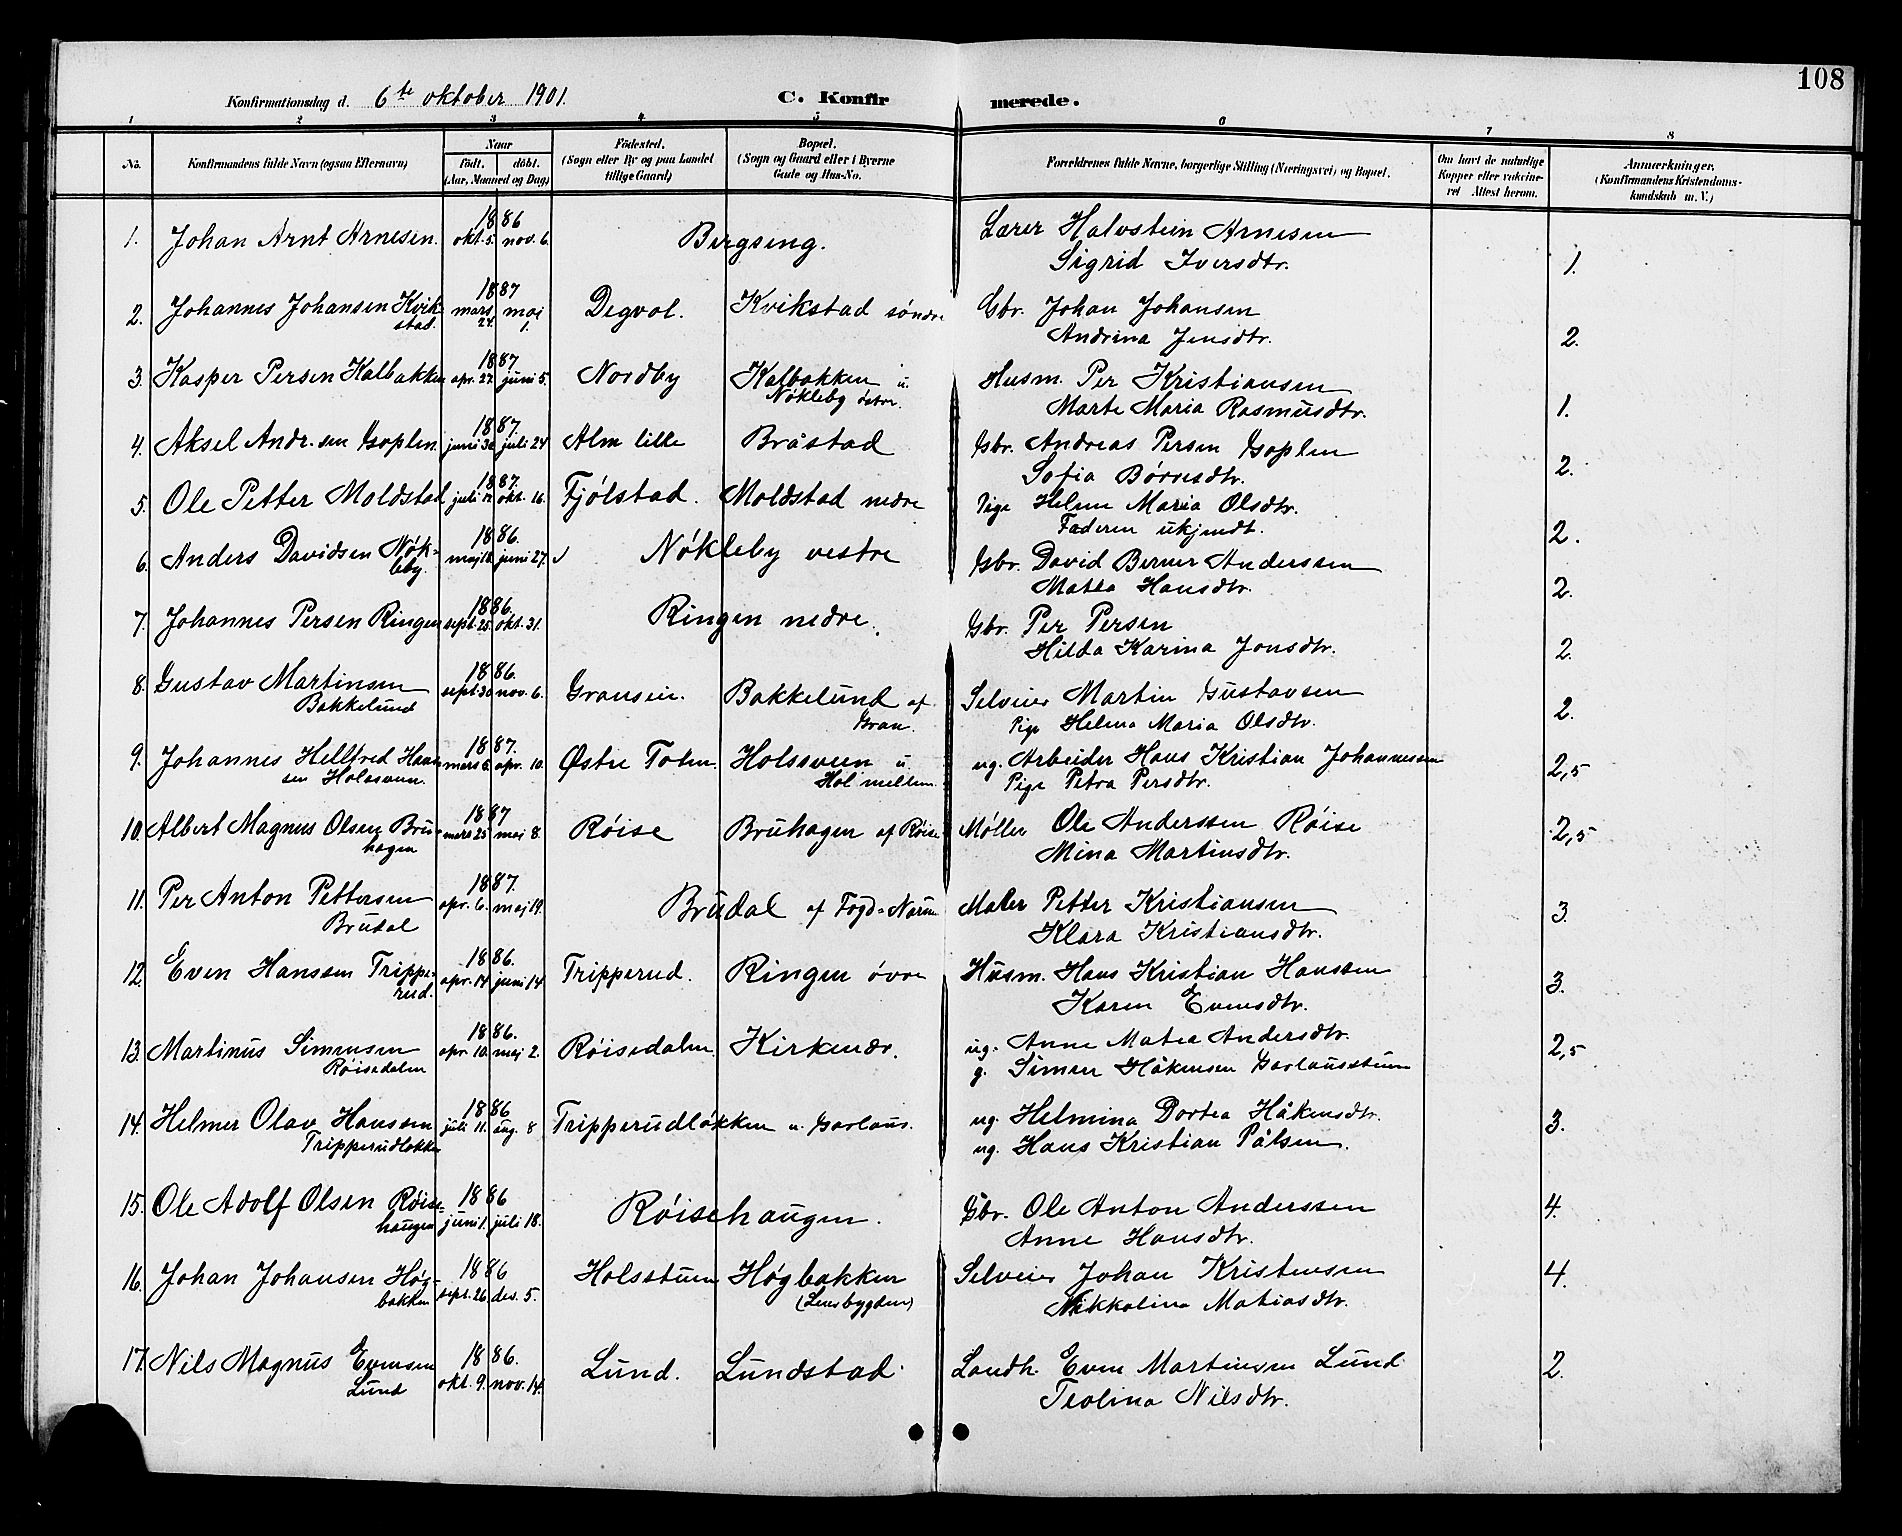 108
Konfirmationsdag d. 6te oktober 1901.
C. Konfirmerede.
1 2 3 4 5 6 7 8
No.
Konfirmandens fulde Navn (ogsaa Efternavn)
Naar
födt. döbt.
(Aar, Maaned og Dag)
Födested.
(Sogn eller By og paa Landet tillige Gaard)
Bopæl.
(Sogn og Gaard eller i Byerne Gade og Hus-No.
Forældrenes fulde Navne, borgerlige Stilling (Næringsvei) og Bopæl.
Om havt de naturlige Kopper eller vakcineret Attest herom.
Anmærkninger.
(Konfirmandens Kristendomskundskab m. V.)
1. Johan Arnt Arnesen. 1886 okt. 5. nov. 6. Bergseng. Lærer Halvstein Arnesen
Sigrid Iversdtr. 1.
2. Johannes Johansen Kvikstad. 1887 mars 24. maj 1. Degvol. Kvikstad söndre Gbr. Johan Johansen
Andrina Jensdtr. 2.
3. Kasper Persen Kalbakken 1887 apr. 27. juni 5. Nordby Kalbakken u. Nökleby östre. Husm. Per Kristiansen
Marte Maria Rasmusdtr. 1.
4. Aksel Andr.sen Hoplen. 1887. juni 30 juli 24 Alm lille Bråstad Gbr. Andreas Persen Hoplen
Sofia Börresdtr. 2.
5. Ole Petter Moldstad 1887. juli 12. okt. 16. Fjölstad. Moldstad nedre Pige Helene Maria Olsdtr.
Faderen ukjendt. 2.
6. Anders Davidsen Nökleby. 1886. maj 18. juni 27. Nökleby vestre Gbr. David Berner Anderssen
Matea Hansdtr. 2.
7. Johannes Persen Ringen 1886. sept. 25. okt. 31. Ringen nedre. Gbr. Per Persen
Hilda Karina Jonsdtr. 2.
8. Gustav Martinsen Bakkelund 1886. sept. 30 nov. 6. Granseie. Bakkelund af Gran. Selveier Martin Gustavsen
Pige Helena Maria Olsdtr. 2.
9. Johannes Hellfred Hanssen Holssveen. 1887. mars 6. apr. 10. Østre Toten Holssveen u. Hol mellem. ug. Arbeider Hans Kristian Johannessen
Pige Petra Persdtr. 2,5
10. Albert Magnus Olsen Bruhagen 1887 mars 25 maj 8. Röise Bruhagen af Röise Möller Ole Anderssen Röise
Mina Martinsdtr. 2,5
11. Per Anton Pettersen Brudal 1887. apr. 6. maj 19. Brudal af Fogd-Narum Maler Petter Kristiansen
Klara Kristiansdtr. 3.
12. Even Hanssen Tripperud. 1886. apr. 14 juni 14 Tripperud. Ringen övre Husm. Hans Kristian Hanssen
Karen Evensdtr. 3.
13. Martinus Simensen Röisedalen 1886. apr. 10. maj 2. Röisedalen. Kirkenær. ug. Anne Matea Andersdtr.
g. Simen Håkensen Garlausstuen 2,5
14. Helmer Olav Hanssen Tripperudløkken 1886 juli 11. aug. 8 Tripperudlökken u. Garlaus. ug. Helmina Dortea Håkensdtr.
ug. Hans Kristian Pålsen. 3.
15. Ole Adolf Olsen Röisehaugen 1886 juni 1. juli 18. Röisehaugen. Gbr. Ole Anton Anderssen
Anne Hansdtr. 4.
16. Johan Johansen Högbakken 1886 sept. 26. des. 5. Holsstuen Högbakken (Lensbygden) Selveier Johan Kristensen
Nikkoline Matiasdtr. 4.
17. Nils Magnus Evensen Lund 1886. okt. 9. nov. 14. Lund. Lundstad. Landh. Even Martinsen Lund
Teolina Nilsdtr. 2.